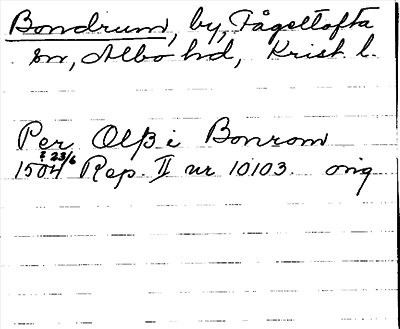 Bondrum, by, Fågeltofta
sn, Albo hd, Krist. l.
Per Olß i Bonrom
1504 23/6 Rep. II nr 10103. orig